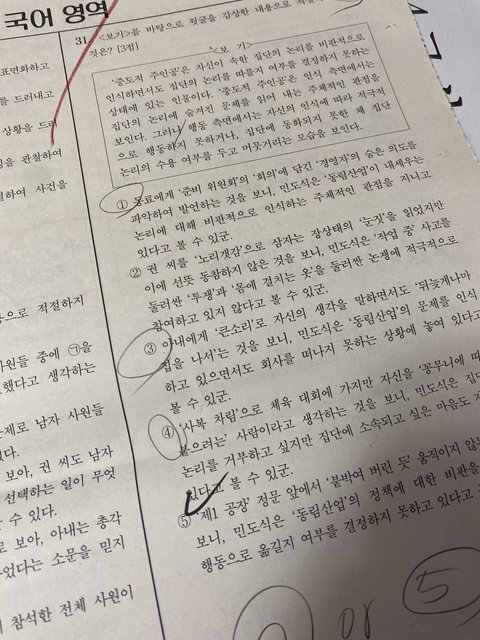 국어 영역
31. <보기>를 바탕으로 윗글을 감상한 내용으로
것은? [3점]
<보 기>
'중도적 주인공'은 자신이 속한 집단의 논리를 비판적으로
인식하면서도 집단의 논리를 따를지 여부를 결정하지 못하는
상태에 있는 인물이다. '중도적 주인공'은 인식 측면에서는
집단의 논리에 숨겨진 문제를 읽어 내는 주체적인 관점을
보인다. 그러나 행동 측면에서는 자신의 인식에 따라 적극적
으로 행동하지 못하거나, 집단에 동화되지 못한 채 집단
논리의 수용 여부를 두고 머뭇거리는 모습을 보인다.
① 동료에게 '준비 위원회'의 '회의'에 담긴 '경영자'의 숨은 의도를
파악하여 발언하는 것을 보니, 민도식은 '동림산업'이 내세우는
논리에 대해 비판적으로 인식하는 주체적인 관점을 지니고
있다고 볼 수 있군.
② 권 씨를 '노리갯감'으로 삼자는 장상태의 '눈짓'을 읽었지만
이에 선뜻 동참하지 않은 것을 보니, 민도식은 '작업 중' 사고를
둘러싼 '투쟁'과 '몸에 걸치는 옷'을 둘러싼 논쟁에 적극적으로
참여하고 있지 않다고 볼 수 있군.
③ 아내에게 '큰소리'로 자신의 생각을 말하면서도 '뒤늦게나마
집을 나서'는 것을 보니, 민도식은 '동림산업'의 문제를 인식
하고 있으면서도 회사를 떠나지 못하는 상황에 놓여 있다고
볼 수 있군.
④ '사복 차림'으로 체육 대회에 가지만 자신을 '꽁무니에 따
붙으려는' 사람이라고 생각하는 것을 보니, 민도식은 집단
논리를 거부하고 싶지만 집단에 소속되고 싶은 마음도
있다고 볼 수 있군.
⑤ '제1 공장' 정문 앞에서 '붙박여 버린 듯' 움직이지 않
보니, 민도식은 '동림산업'의 정책에 대한 비판을
행동으로 옮길지 여부를 결정하지 못하고 있다고
or ⑤
표면화하고
를 드러내고
상황을 드러
을 관찰하여
하여 사건을
으로 적절하지
사원들 중에 ㉠을
했다고 생각하는
문제로 남자 사원들
보아, 권 씨도 남자
선택하는 일이 무엇
수 있다.
로 보아, 아내는 총각
었다는 소문을 믿지
참석한 전체 사원이